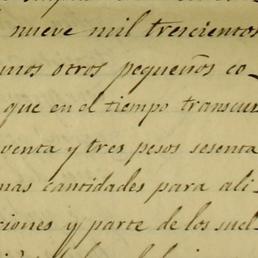 nueve mil trescientos
unos otros pequeños co
que en el tiempo transcur
venta y tres pesos sesenta
mas cantidades para ali
ciones y parte de los suel